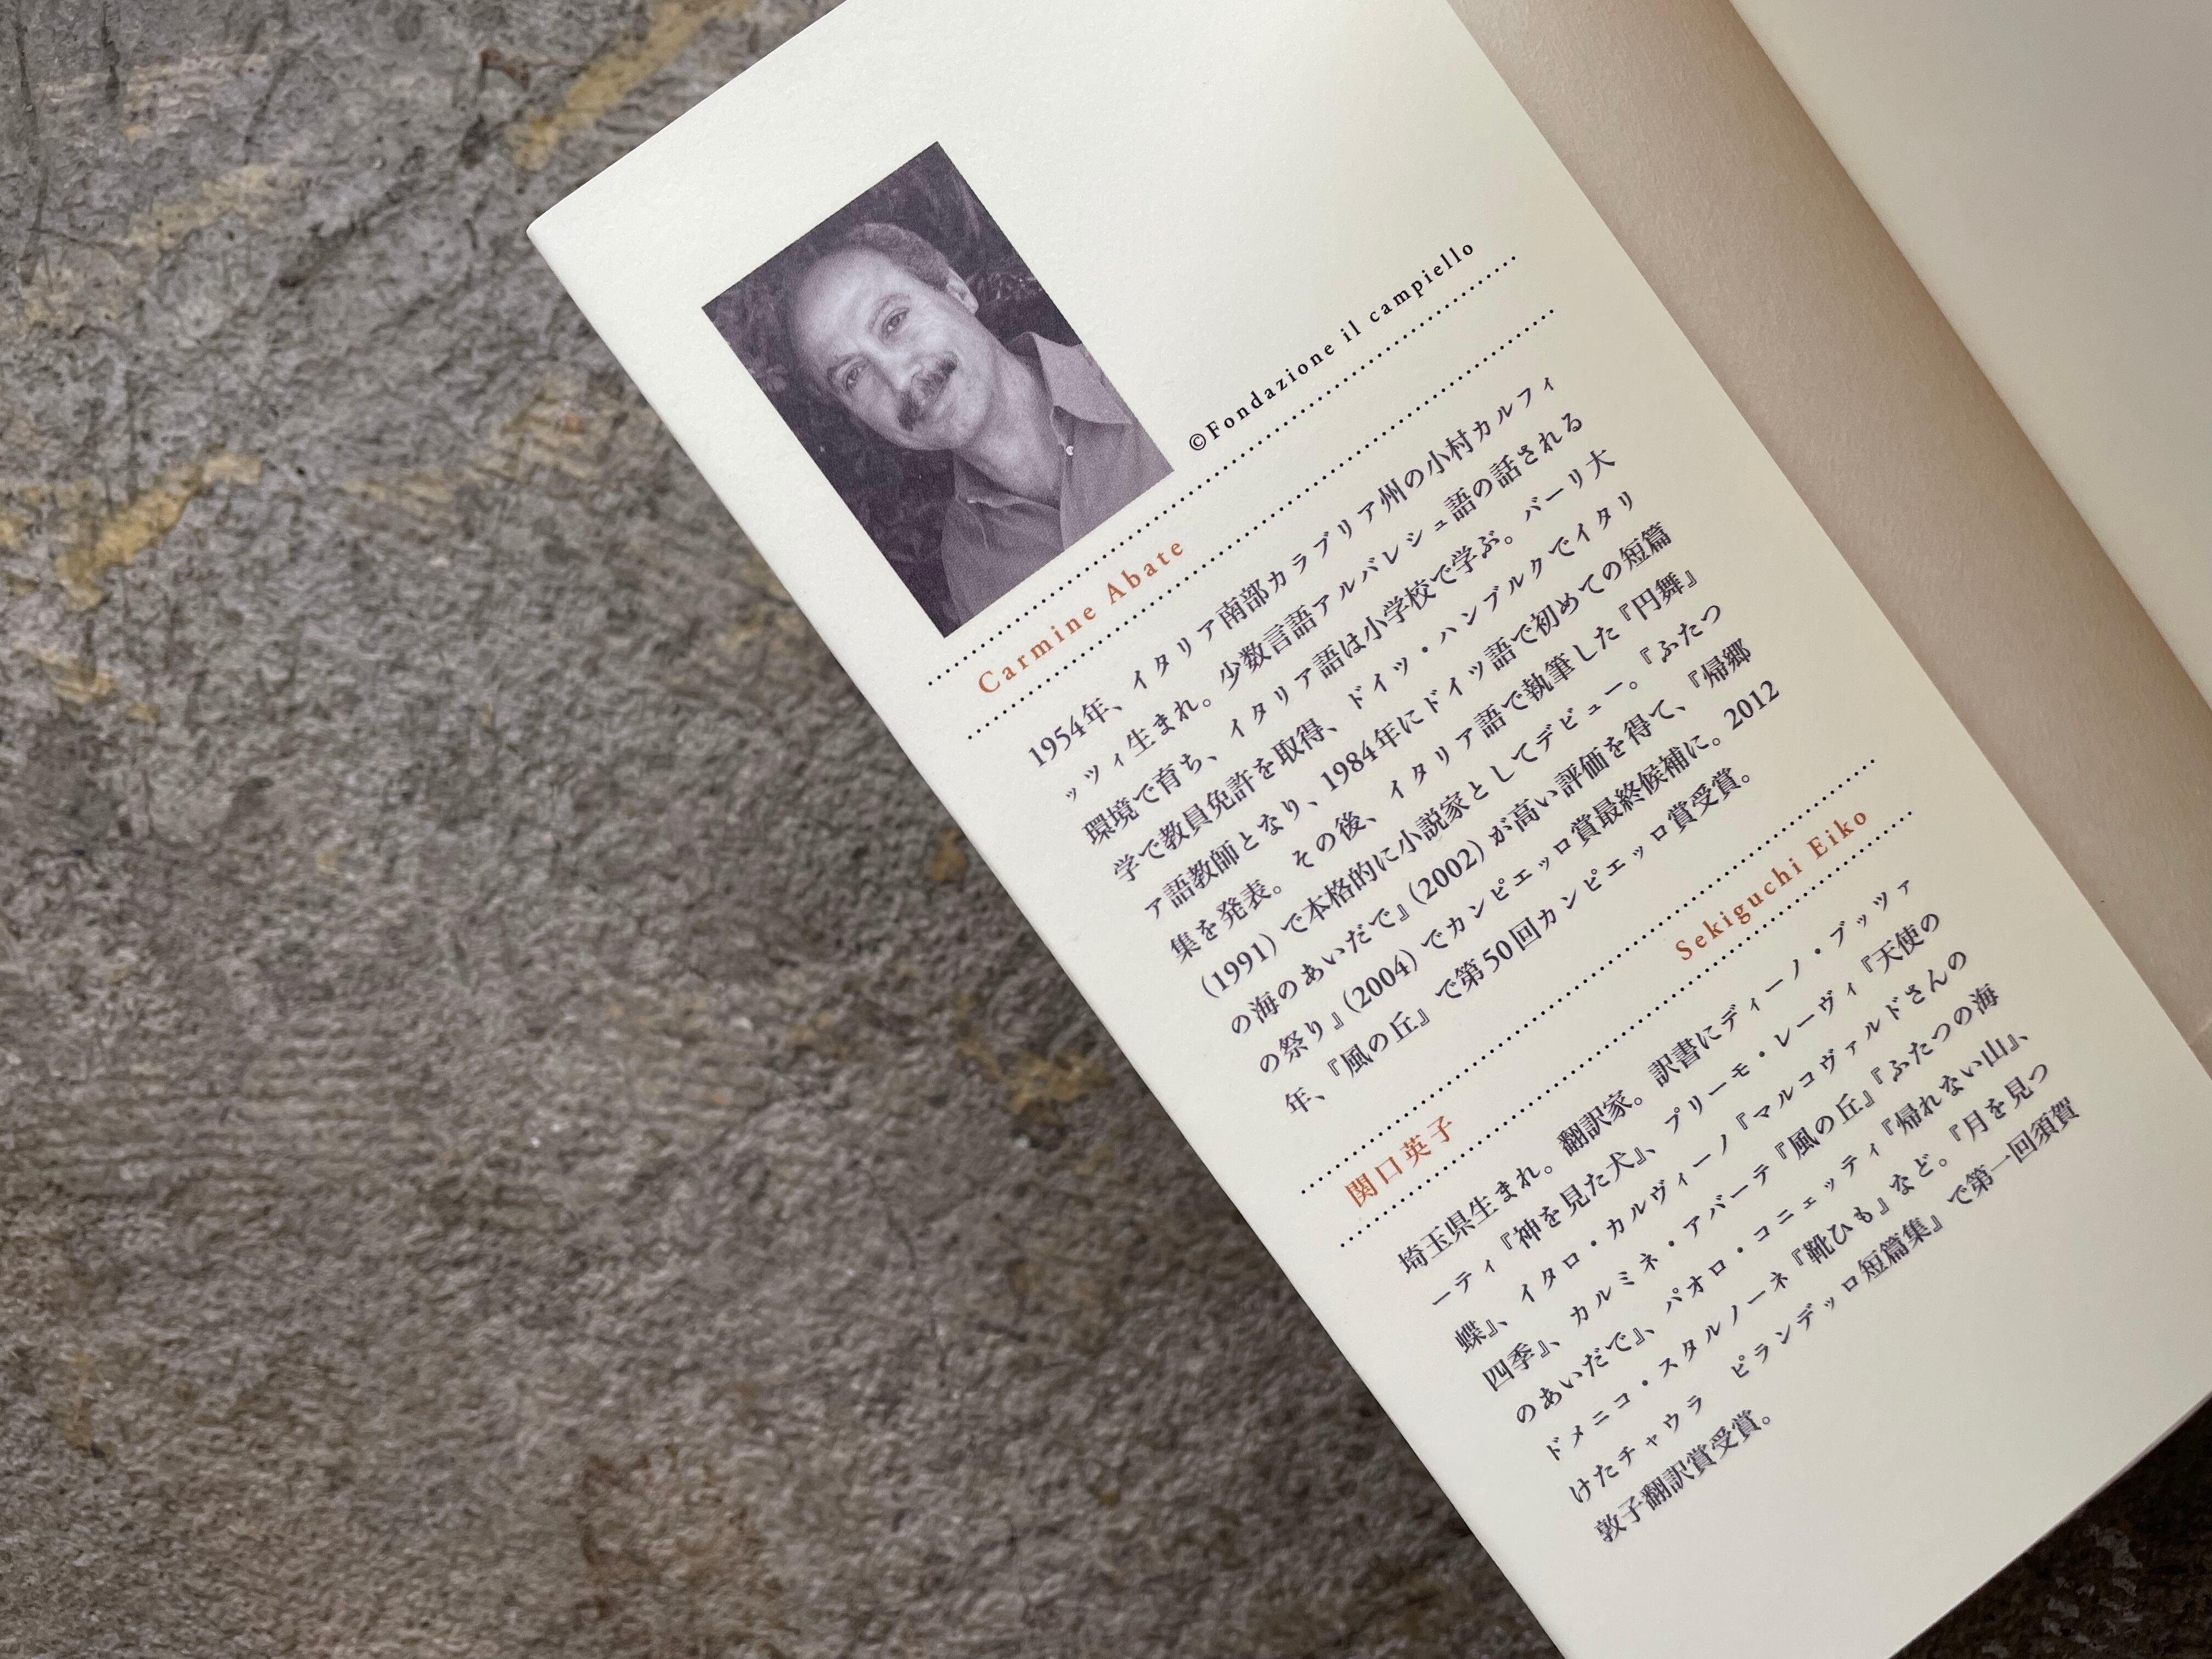 ©Fondazione il campiello
Carmine Abate
1954年、イタリア南部カラブリア州の小村カルフィ
ッツィ生まれ。少数言語アルバレシュ語の話される
環境で育ち、イタリア語は小学校で学ぶ。バーリ大
学で教員免許を取得、ドイツ・ハンブルクでイタリ
ア語教師となり、1984年にドイツ語で初めての短篇
集を発表。その後、イタリア語で執筆した『円舞』
（1991）で本格的に小説家としてデビュー。『ふたつ
の海のあいだで』（2002）が高い評価を得て、『帰郷
の祭り』（2004）でカンピエッロ賞最終候補に。2012
年、『風の丘』で第50回カンピエッロ賞受賞。
関口英子 Sekiguchi Eiko
埼玉県生まれ。翻訳家。訳書にディーノ・ブッツァ
ーティ『神を見た犬』、プリーモ・レーヴィ『天使の
蝶』、イタロ・カルヴィーノ『マルコヴァルドさんの
四季』、カルミネ・アバーテ『風の丘』『ふたつの海
のあいだで』、パオロ・コニェッティ『帰れない山』、
ドメニコ・スタルノーネ『靴ひも』など。『月を見つ
けたチャウラ　ピランデッロ短篇集』で第一回須賀
敦子翻訳賞受賞。